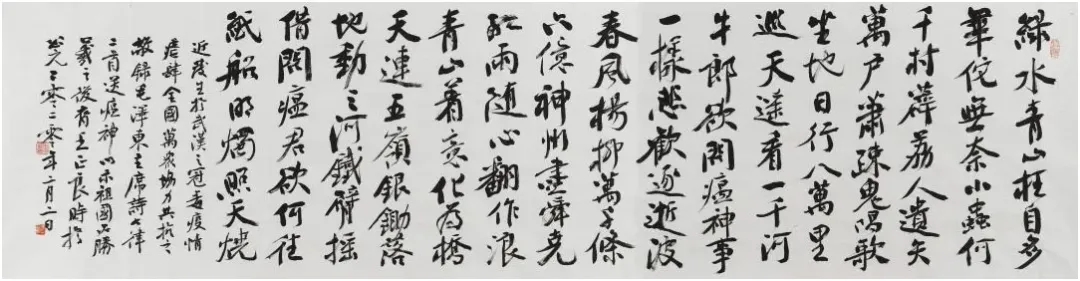 綠水青山枉自多
華佗無奈小蟲何
千村薜荔人遺矢
萬戶蕭疎鬼唱歌
坐地日行八萬里
巡天遙看一千河
牛郎欲問瘟神事
一樣悲歡逐逝波
春風楊柳萬千條
六億神州盡舜堯
紅雨隨心翻作浪
青山着意化為橋
天連五嶺銀鋤落
地動三河鐵臂搖
借問瘟君欲何往
紙船明燭照天燒
近發生於武漢之冠毒疫情
虐肆全國萬眾協力共抗之
敬錄毛澤東主席詩七律
二首送瘟神以示祖國必勝
羲之後裔王正良時於
公元二零二零年二月二日